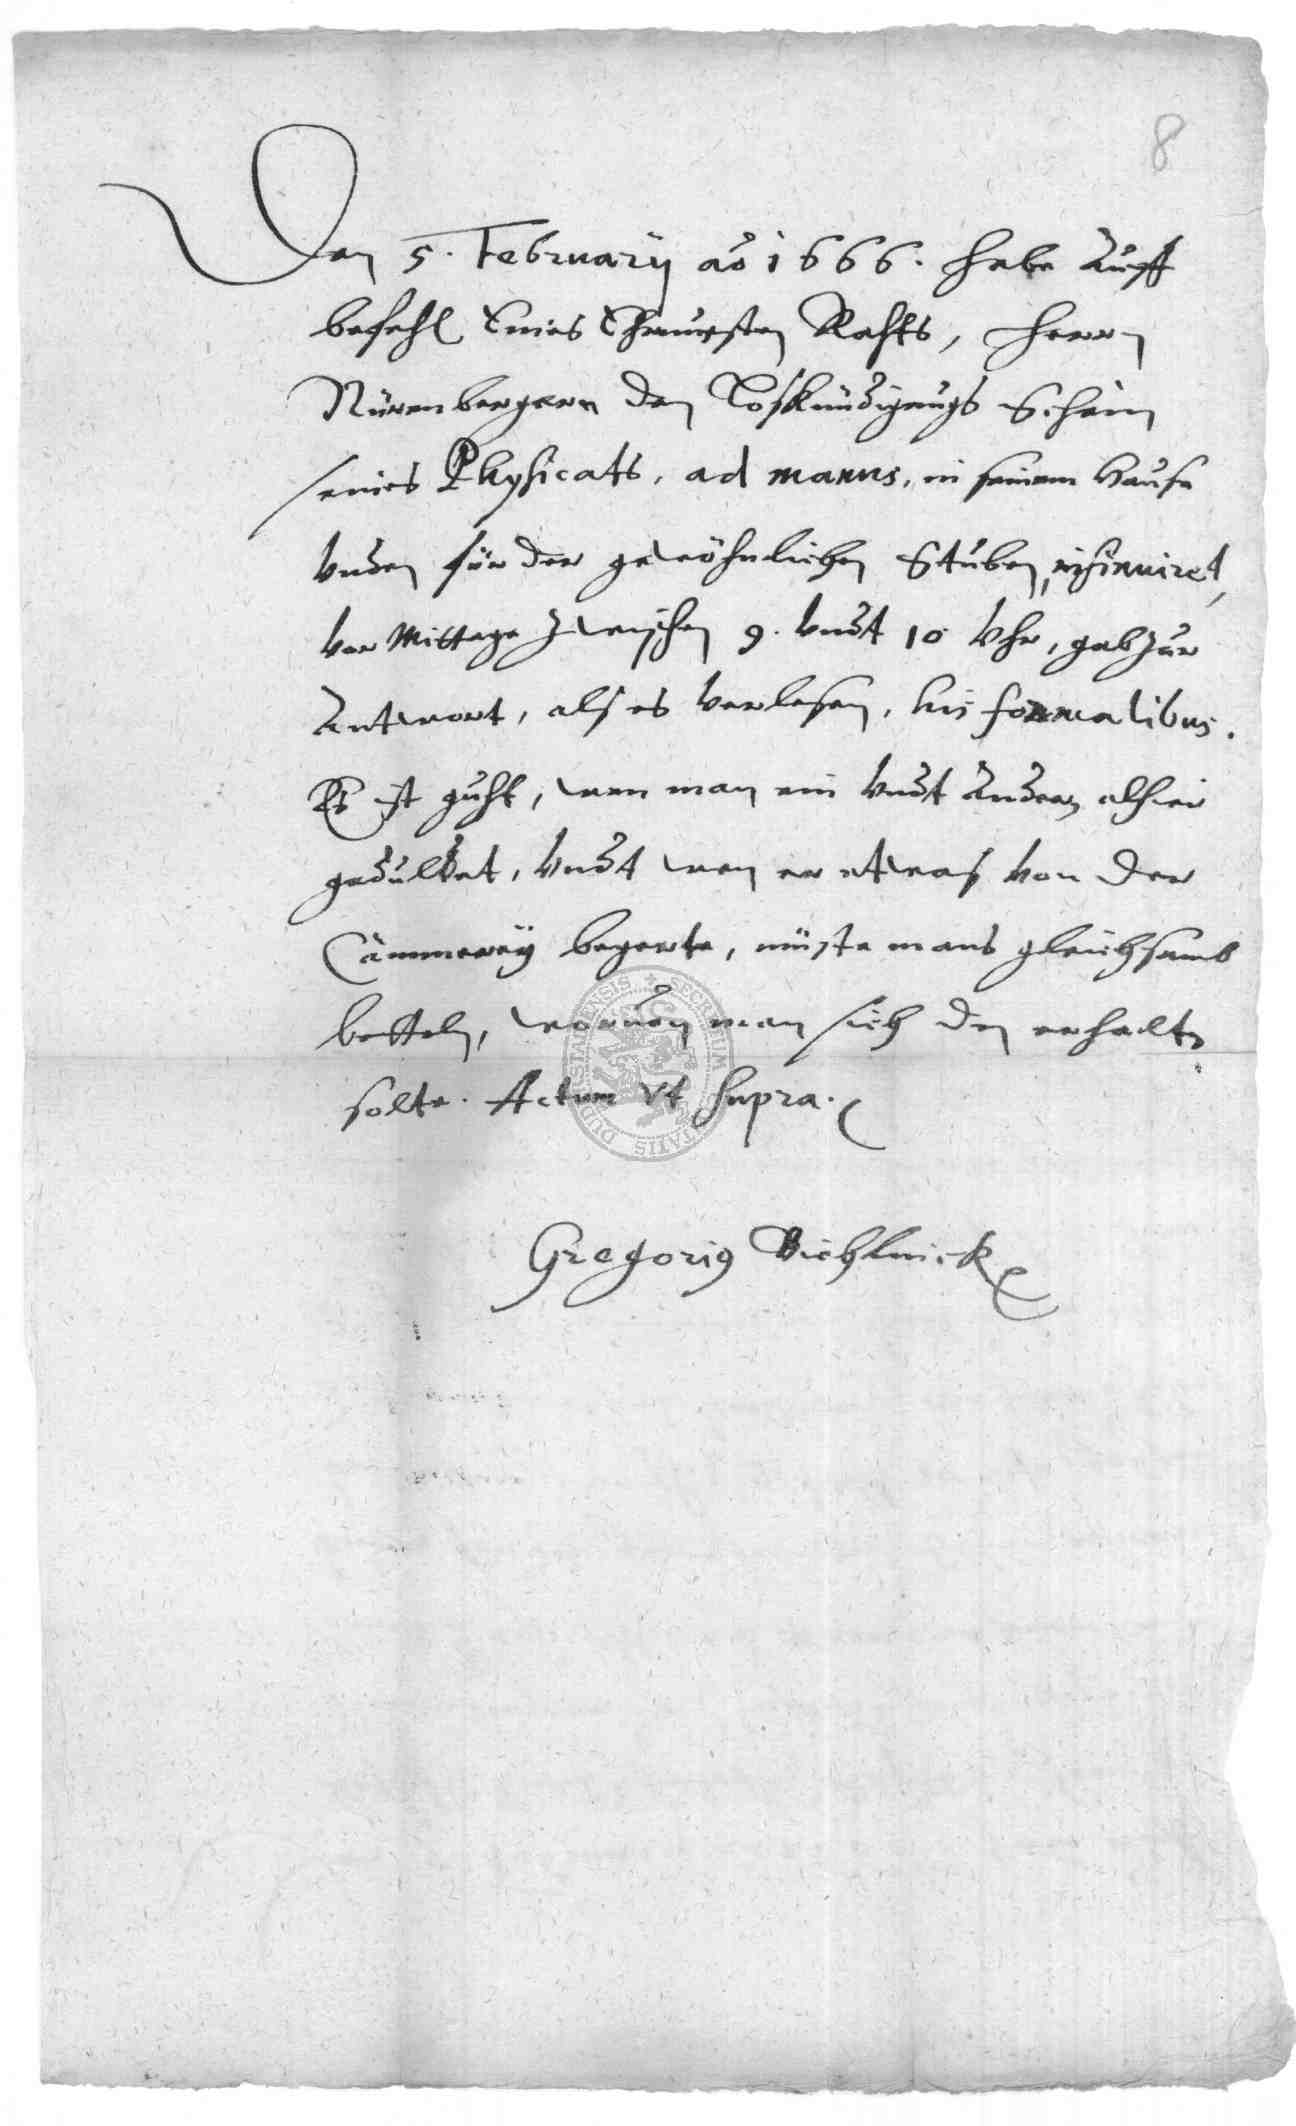 8
Den 5. February aõ 1666. habe auff
befehl Eines Ehrnvesten Rahts, Herrn
Nürenbergern den Loßkündigungs Schein
seines Physicats, ad manus, in seinem Hause
unden für der gewöhnlichen Stuben, insinuiret,
vor Mittage zwischen 9. undt 10 Uhr, gab zur
Antwort, alß es verlesen, his formalibus.
Es ist guht, wen man ein undt andern alhier
geduldet, undt wen er etwaß von der
Cämmerey begerte, müste mans gleichsamb
betteln, worvon man sich den erhalten
solte. Actum Vt supra.
Gregorius
SECRETUM CIVITATIS DUDERSTADENSIS